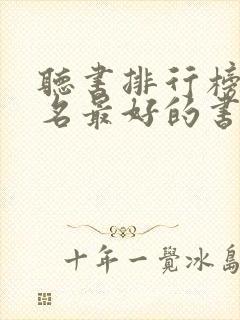 聽書排行榜
名最好的書
十年一覺冰島